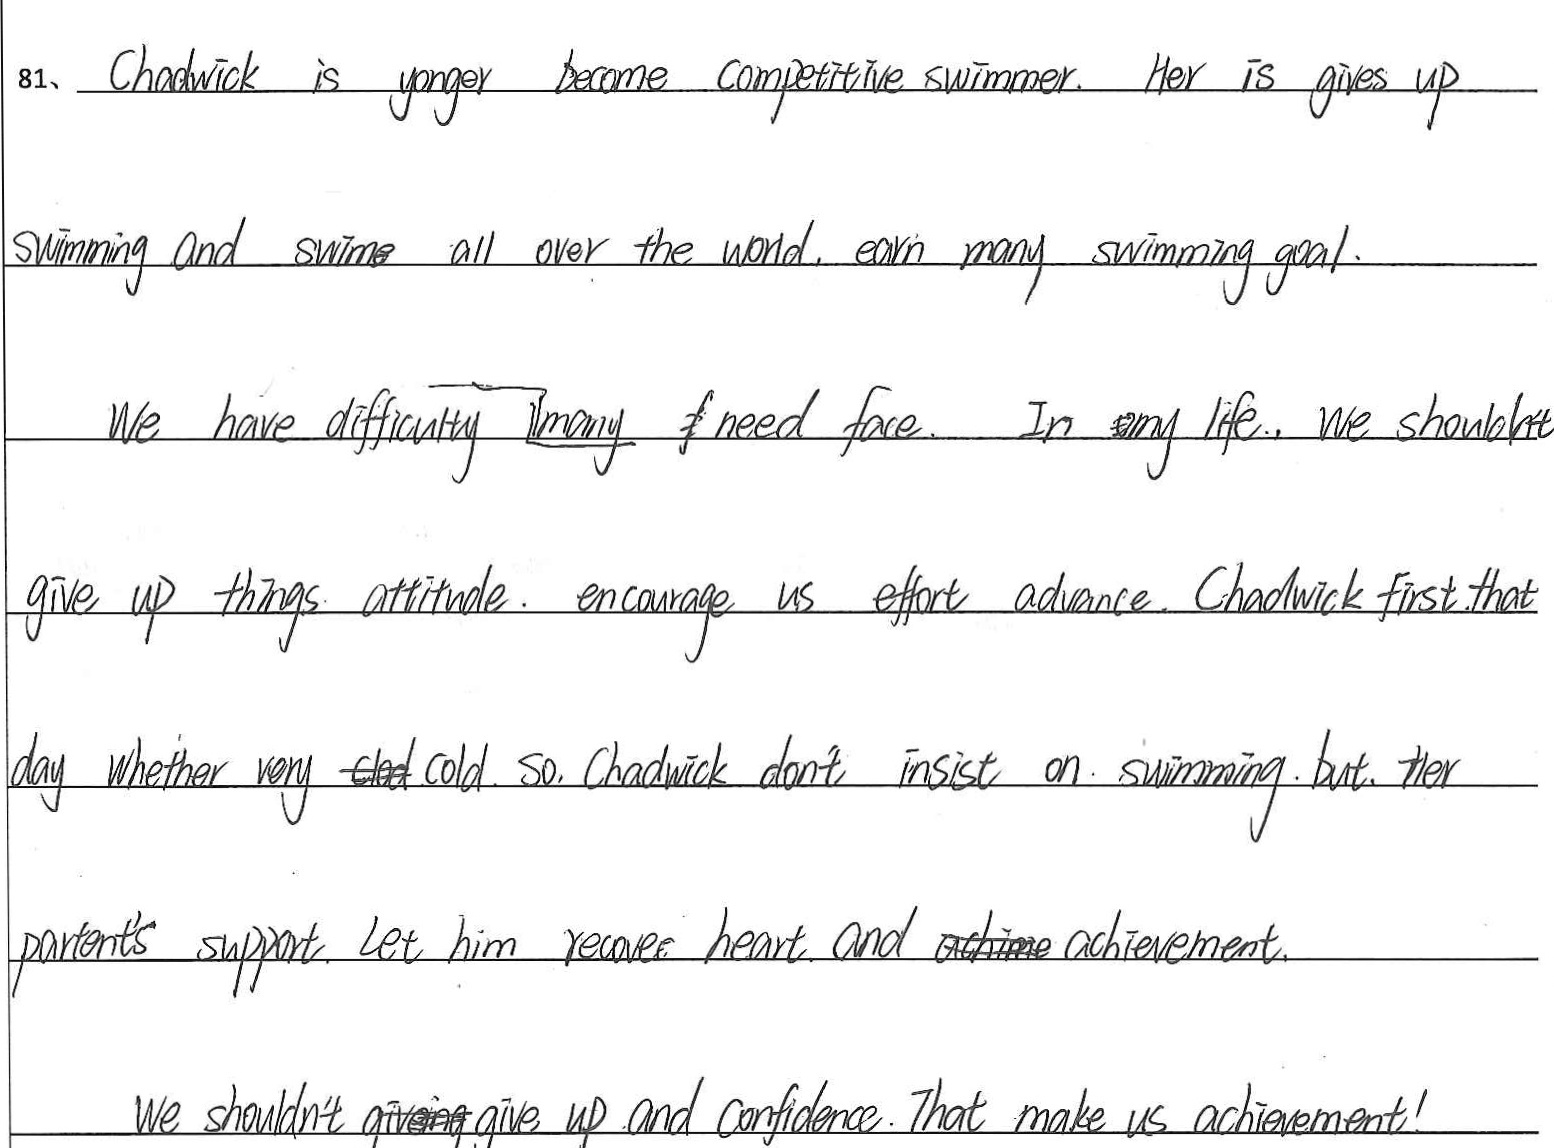 81、 Chadwick is yonger become competitive swimmer. Her is gives up
swimming and swime all over the world. earn many swimming goal.
We have difficulty many need face. In my life., We shouldn't
give up things. attitude. encourage us effort advance. Chadwick first. that
day whether very cold. so. Chadwick don't insist on. swimming. but. Her
partent's support. Let him recover heart. and achievement.
We shouldn't give up and confidence. That make us achievement!